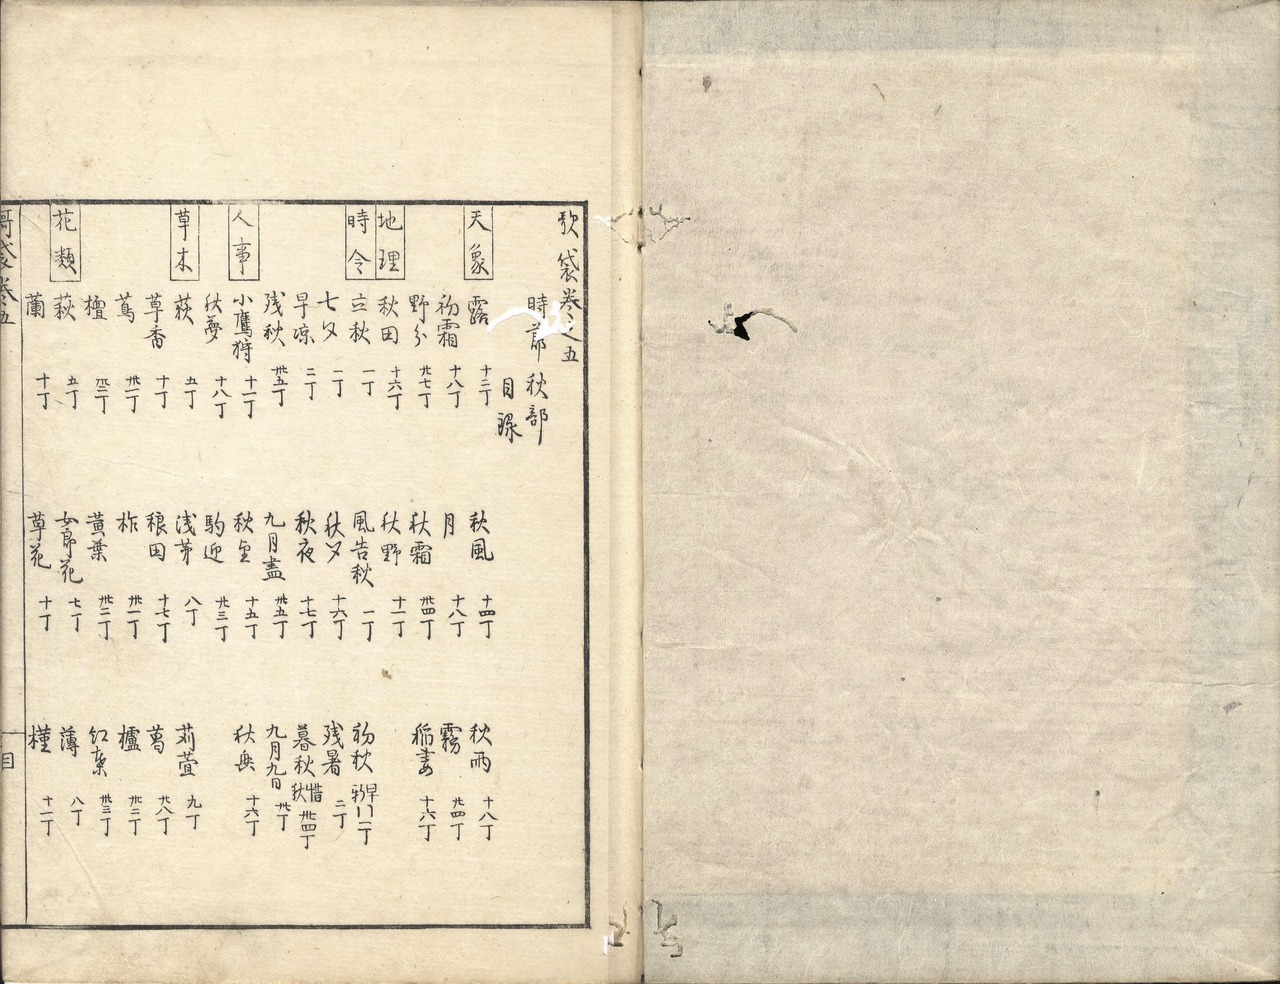 歌袋巻之五
時節 秋部
目録
天象 露 十二丁 秋風 十四丁 秋雨 十八丁
初霜 十八丁 月 十八丁 霧 廿四丁
野分 廿七丁 秋霜 卅四丁 稲妻 十六丁
地理 秋田 十六丁 秋野 十一丁
時令 立秋 一丁 風告秋 一丁 初秋 二丁
七夕 一丁 秋夕 十六丁 残暑 二丁
早凉 二丁 秋夜 十七丁 暮秋 惜秋 卅四丁
残秋 卅五丁 九月盡 卅五丁 九月九日 卅丁
人事 小鷹狩 十一丁 十五丁 秋興 十六丁
秋夢 十八丁 駒迎 廿三丁
草木 荻 五丁 浅茅 八丁 苅萱 九丁
草香 十丁 穂田 十七丁 葛 廿八丁
蔦 卅一丁 柞 卅一丁 櫨 卅二丁
檀 卅二丁 黄葉 卅二丁 紅葉 卅三丁
花類 萩 五丁 女郎花 七丁 薄 八丁
蘭 十丁 草花 十丁 槿 十一丁
哥袋巻五 一目